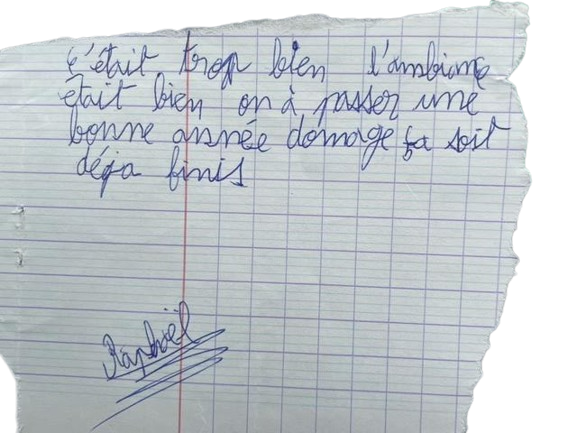 c'était trop bien l'ambiance
était bien on à passer une
bonne année domage ça soit
déja finis
Raphaël